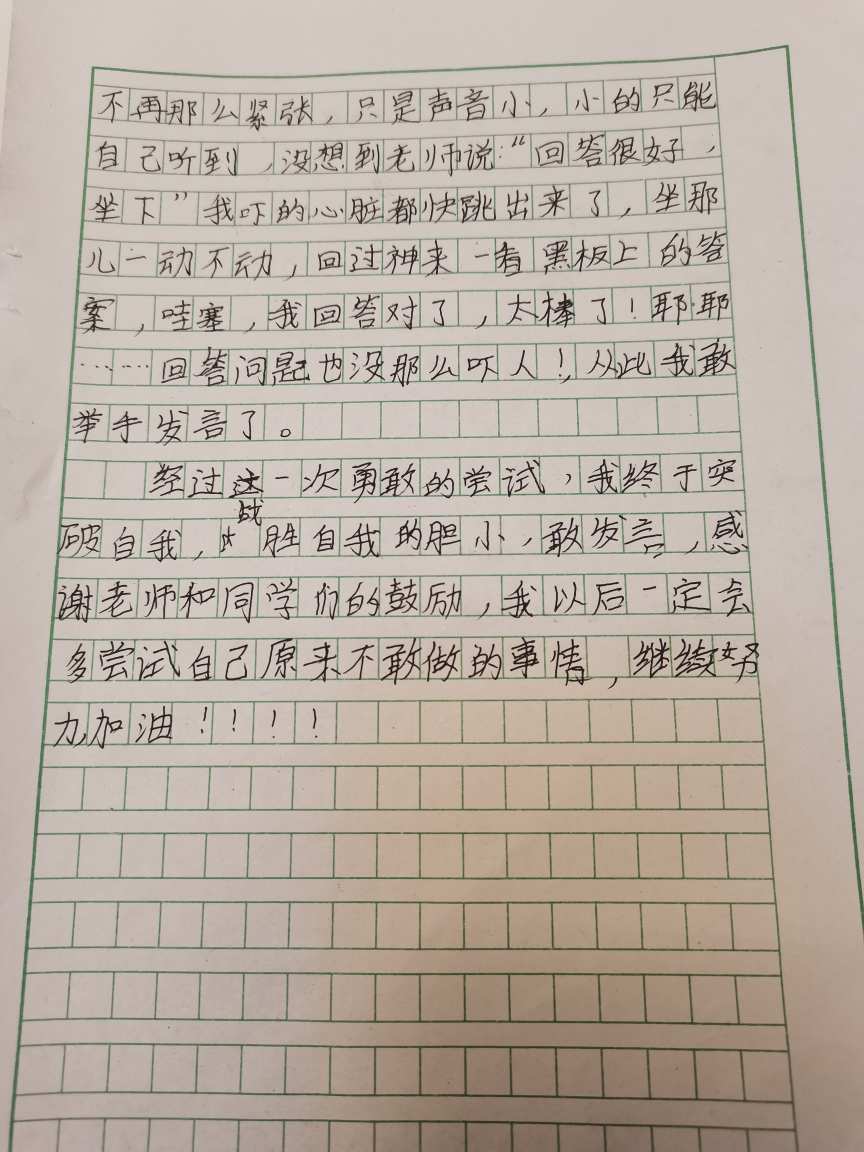 不再那么紧张，只是声音小，小的只能
自己听到，没想到老师说：“回答很好，
坐下”我吓的心脏都快跳出来了，坐那
儿一动不动，回过神来一看黑板上的答
案，哇塞，我回答对了，太棒了！耶耶
……回答问题也没那么吓人！，从此我敢
举手发言了。
经过这一次勇敢的尝试，我终于突
破自我，战胜自我的胆小，敢发言，感
谢老师和同学们的鼓励，我以后一定会
多尝试自己原来不敢做的事情，继续努
力加油！！！！